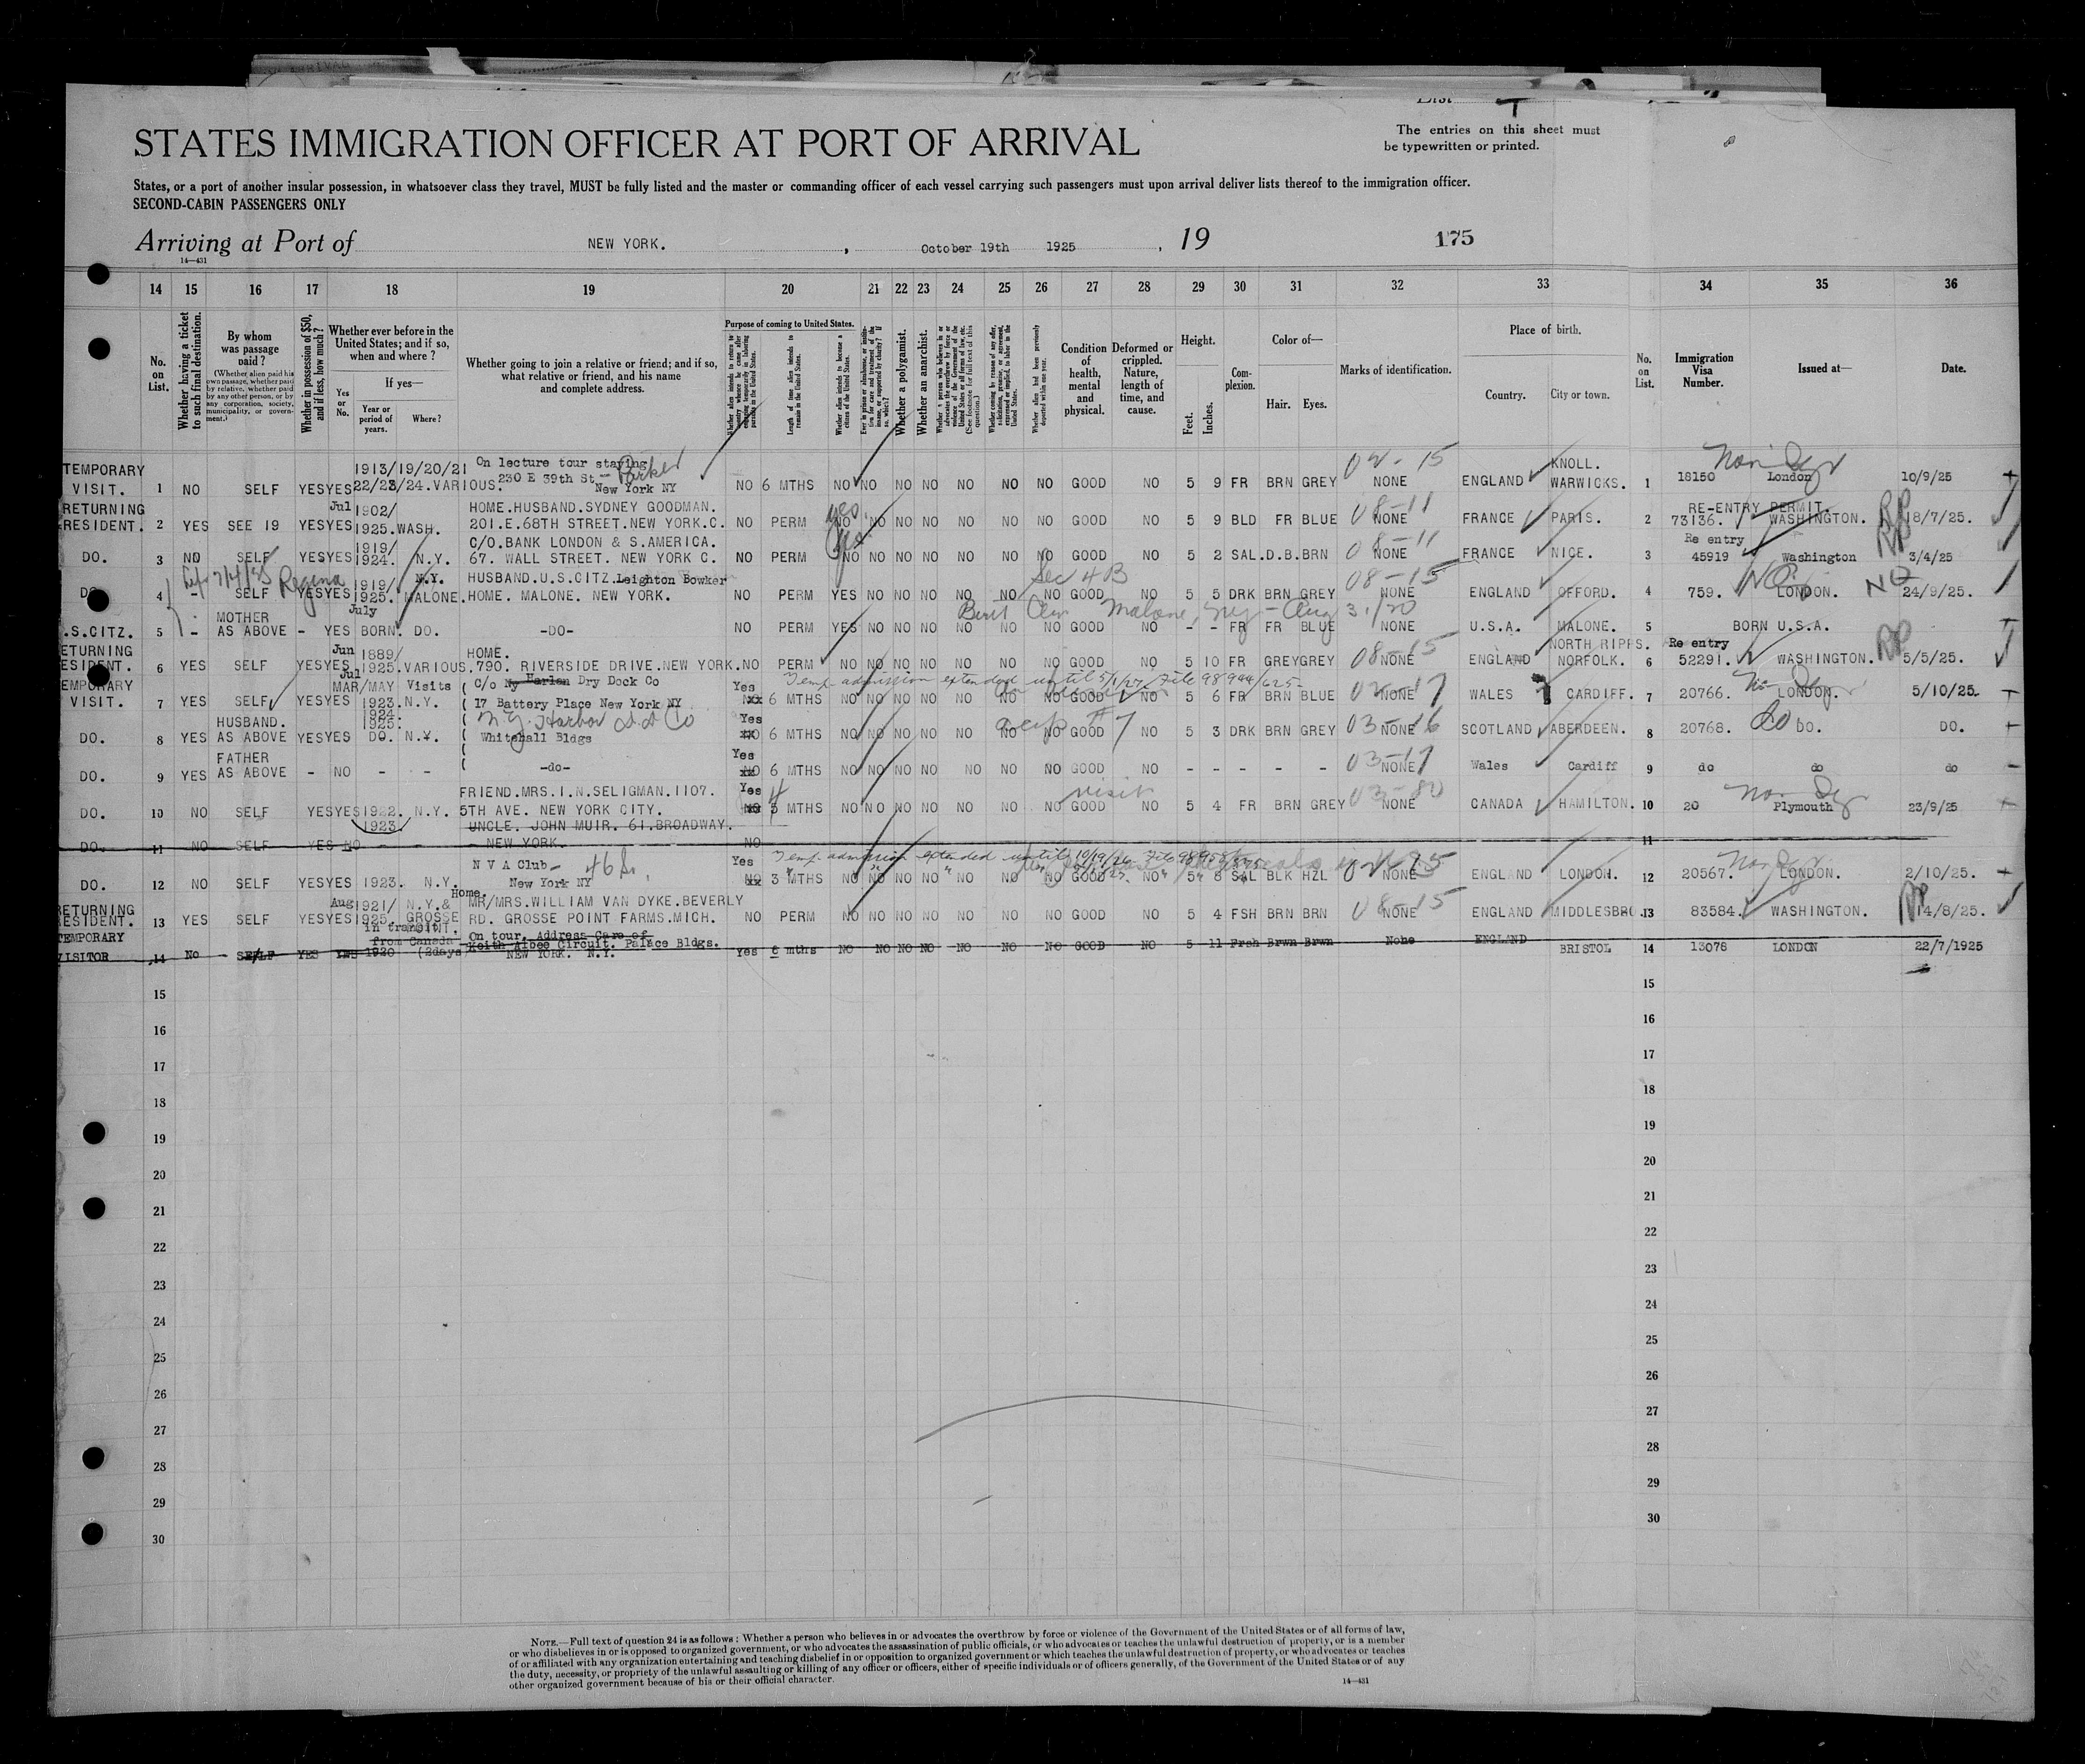 List T
STATES IMMIGRATION OFFICER AT PORT OF ARRIVAL
The entries on this sheet must
be typewritten or printed.
States, or a port of another insular possession, in whatsoever class they travel, MUST be fully listed and the master or commanding officer of each vessel carrying such passengers must upon arrival deliver lists thereof to the immigration officer.
SECOND-CABIN PASSENGERS ONLY
Arriving at Port of NEW YORK. , October 19th 1925 , 19 175
14—431
14 15 16 17 18 19 20 21 22 23 24 25 26 27 28 29 30 31 32 33 34 35 36
No. on List.
Whether having a ticket to such final destination.
By whom was passage paid?
(Whether alien paid his own passage, whether paid by relative, whether paid by any other person, or by any corporation, society, municipality, or government.)
Whether in possession of $50, and if less, how much?
Whether ever before in the United States; and if so, when and where?
Yes or No.
If yes—
Year or period of years.
Where?
Whether going to join a relative or friend; and if so, what relative or friend, and his name and complete address.
Purpose of coming to United States.
Length of time alien intends to remain in the United States.
Whether alien intends to become a citizen of the United States.
Whether a polygamist.
Whether an anarchist.
Condition of health, mental and physical.
Deformed or crippled. Nature, length of time, and cause.
Height.
Feet. Inches.
Complexion.
Color of—
Hair. Eyes.
Marks of identification.
Place of birth.
Country. City or town.
No. on List.
Immigration Visa Number.
Issued at—
Date.
TEMPORARY 1913/19/20/21 On lecture tour staying Parker 02-15 KNOLL. Non
VISIT. 1 NO SELF YES YES 22/23/24. VARIOUS. 230 E 39th St New York NY NO 6 MTHS NO NO NO NO NO NO NO GOOD NO 5 9 FR BRN GREY NONE ENGLAND WARWICKS. 1 18150 London 10/9/25
RETURNING Jul 1902/ HOME.HUSBAND.SYDNEY GOODMAN. yes 08-11 RE-ENTRY PERMIT.
RESIDENT. 2 YES SEE 19 YES YES 1925. WASH. 201.E.68TH STREET.NEW YORK.C. NO PERM NO NO NO NO NO NO NO GOOD NO 5 9 BLD FR BLUE NONE FRANCE PARIS. 2 73136. WASHINGTON. RP 18/7/25.
1919/ C/O.BANK LONDON & S.AMERICA. yes 08-11 Re entry
DO. 3 NO SELF YES YES 1924. N.Y. 67. WALL STREET. NEW YORK C. NO PERM NO NO NO NO NO NO NO GOOD NO 5 2 SAL. D.B. BRN NONE FRANCE NICE. 3 45919 Washington RP 3/4/25
7/4/25 Regina 1919/ N.Y. HUSBAND.U.S.CITZ.Leighton Bowker Sec 4B 08-15 NQ
DO 4 - SELF YES YES 1925. MALONE. HOME. MALONE. NEW YORK. NO PERM YES NO NO NO NO NO NO GOOD NO 5 5 DRK BRN GREY NONE ENGLAND OFFORD. 4 759. LONDON. NQ 24/9/25.
MOTHER July Malone, N.Y. - Aug 31/20
.S.CITZ. 5 - AS ABOVE - YES BORN. DO. -DO- NO PERM YES NO NO NO NO NO NO GOOD NO - - FR FR BLUE NONE U.S.A. MALONE. 5 BORN U.S.A.
ETURNING Jun 1889/ HOME. 08-15 NORTH RIPPS. Re entry
ESIDENT. 6 YES SELF YES YES 1925. VARIOUS. 790. RIVERSIDE DRIVE.NEW YORK. NO PERM NO NO NO NO NO NO NO GOOD NO 5 10 FR GREY GREY NONE ENGLAND NORFOLK. 6 52291. WASHINGTON. RP 5/5/25.
EMPORARY Jul MAR/MAY Visits C/o Ny Harlan Dry Dock Co Yes Temp. admission extended until 5/1/27, File 98944/625
VISIT. 7 YES SELF YES YES 1923. N.Y. 17 Battery Place New York NY 6 MTHS NO NO NO NO NO NO NO GOOD NO 5 6 FR BRN BLUE 02-17 NONE WALES CARDIFF. 7 20766. LONDON. 5/10/25.
HUSBAND. 1924. 1925. N.Y. Harbor D.D. Co Yes 03-16
DO. 8 YES AS ABOVE YES YES DO. N.Y. Whitehall Bldgs NO 6 MTHS NO NO NO NO NO NO NO GOOD NO 5 3 DRK BRN GREY NONE SCOTLAND ABERDEEN. 8 20768. DO. DO.
FATHER Yes 03-17
DO. 9 YES AS ABOVE - NO - - -do- NO 6 MTHS NO NO NO NO NO NO NO GOOD NO - - - - - NONE Wales Cardiff 9 do do do
FRIEND.MRS.I.N.SELIGMAN.1107. Yes 4 visit 03-80
DO. 10 NO SELF YES YES 1922. N.Y. 5TH AVE. NEW YORK CITY. NO 3 MTHS NO NO NO NO NO NO NO GOOD NO 5 4 FR BRN GREY NONE CANADA HAMILTON. 10 20 Plymouth 23/9/25
1923. UNCLE. JOHN MUIR. 61.BROADWAY.
DO. 11 NO SELF YES NO - - NEW YORK. NO 11
N V A Club - 46 St. Yes Temp. admission extended until 10/19/26
DO. 12 NO SELF YES YES 1923. N.Y. New York NY NO 3 MTHS NO NO NO NO NO NO NO GOOD NO 5 8 SAL BLK HZL NONE ENGLAND LONDON. 12 20567. LONDON. 2/10/25.
RETURNING Aug 1921/ N.Y.& Home. MR/MRS.WILLIAM VAN DYKE.BEVERLY 08-15
RESIDENT. 13 YES SELF YES YES 1925. GROSSE RD. GROSSE POINT FARMS.MICH. NO PERM NO NO NO NO NO NO NO GOOD NO 5 4 FSH BRN BRN NONE ENGLAND MIDDLESBRO. 13 83584. WASHINGTON. RP 14/8/25.
TEMPORARY in transit from Canada On tour, Address Care of Keith Albee Circuit. Palace Bldgs.
VISITOR 14 No SELF YES YES 1920 (2days NEW YORK. N.Y. Yes 6 mths NO NO NO NO NO NO NO GOOD NO 5 11 Frsh Brwn Brwn None ENGLAND BRISTOL 14 13078 LONDON 22/7/1925
15 15
16 16
17 17
18 18
19 19
20 20
21 21
22 22
23 23
24 24
25 25
26 26
27 27
28 28
29 29
30 30
NOTE.—Full text of question 24 is as follows: Whether a person who believes in or advocates the overthrow by force or violence of the Government of the United States or of all forms of law,
or who disbelieves in or is opposed to organized government, or who advocates the assassination of public officials, or who advocates or teaches the unlawful destruction of property, or is a member
of or affiliated with any organization entertaining and teaching disbelief in or opposition to organized government or which teaches the unlawful destruction of property, or who advocates or teaches
the duty, necessity, or propriety of the unlawful assaulting or killing of any officer or officers, either of specific individuals or of officers generally, of the Government of the United States or of any
other organized government because of his or their official character.
14—431